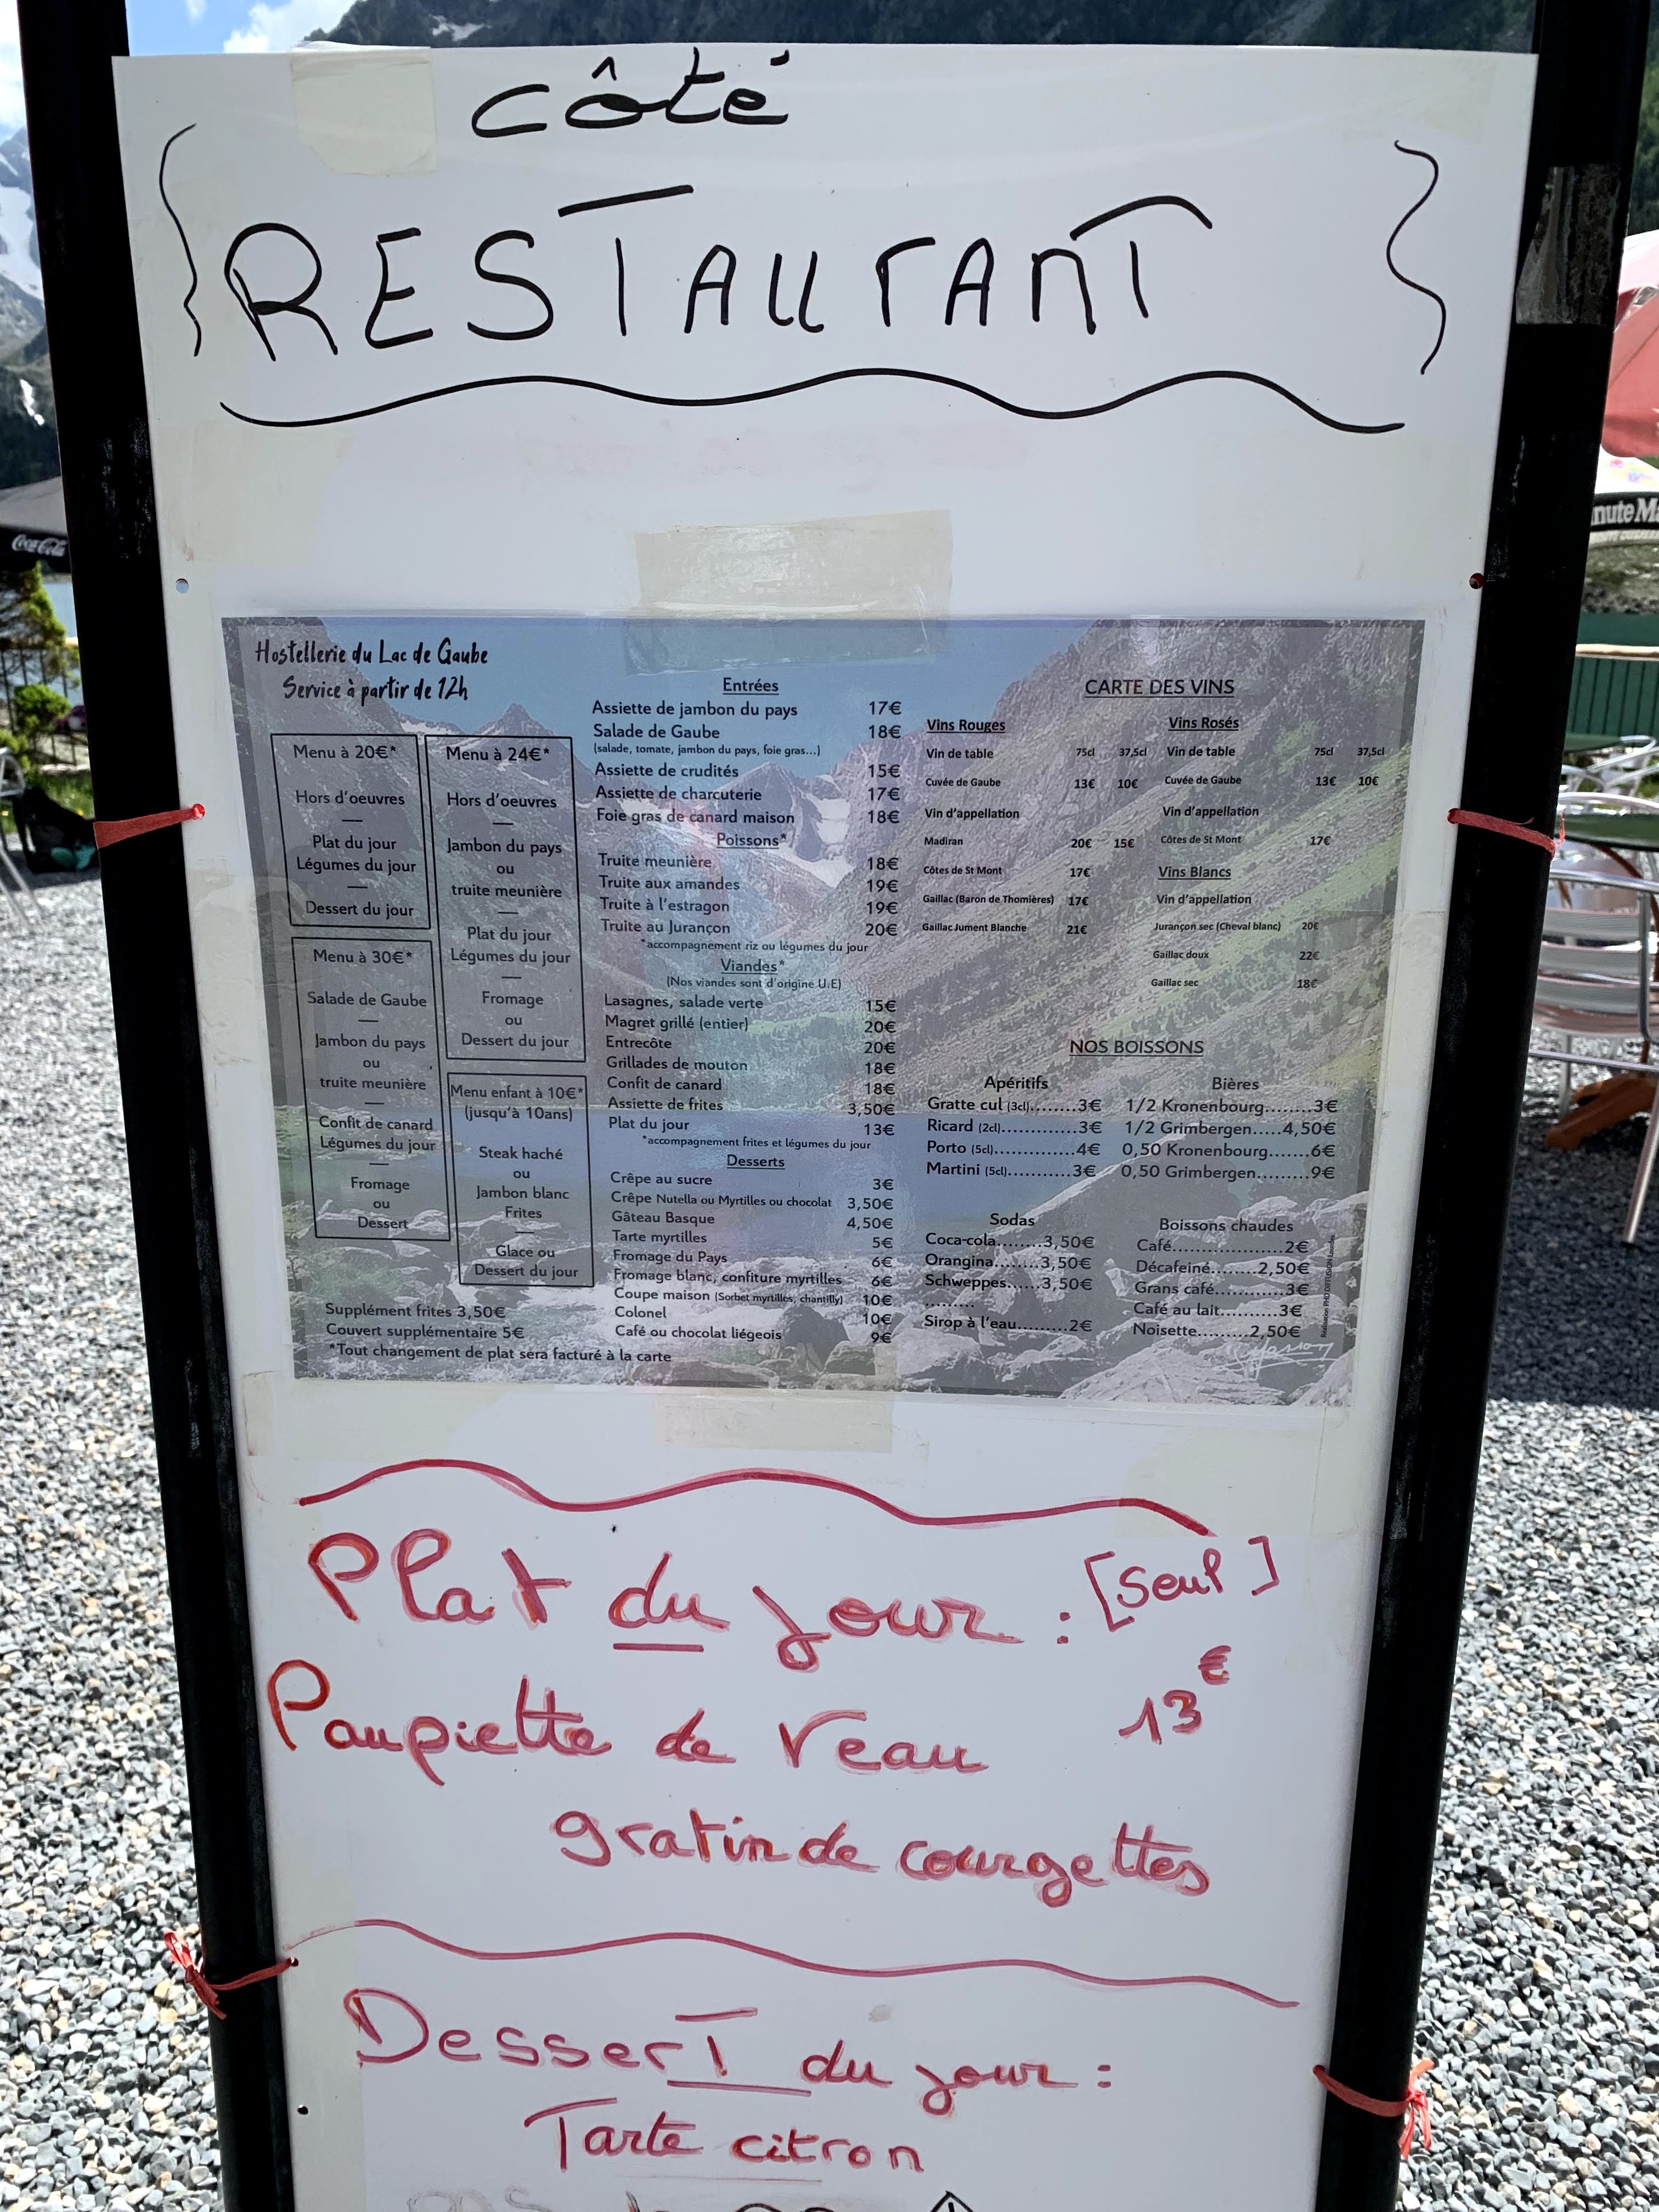 côté
RESTAURANT
Coca-Cola
nute Ma
Hostellerie du Lac de Gaube
Service à partir de 12h
Menu à 20€*
Hors d'oeuvres
Plat du jour
Légumes du jour
Dessert du jour
Menu à 24€*
Hors d'oeuvres
Jambon du pays
ou
truite meunière
Plat du jour
Légumes du jour
Fromage
ou
Dessert du jour
Menu à 30€*
Salade de Gaube
Jambon du pays
ou
truite meunière
Confit de canard
Légumes du jour
Fromage
ou
Dessert
Menu enfant à 10€*
(jusqu'à 10ans)
Steak haché
ou
Jambon blanc
Frites
Glace ou
Dessert du jour
Supplément frites 3,50€
Couvert supplémentaire 5€
*Tout changement de plat sera facturé à la carte
Entrées
Assiette de jambon du pays 17€
Salade de Gaube 18€
(salade, tomate, jambon du pays, foie gras...)
Assiette de crudités 15€
Assiette de charcuterie 17€
Foie gras de canard maison 18€
Poissons*
Truite meunière 18€
Truite aux amandes 19€
Truite à l'estragon 19€
Truite au Jurançon 20€
*accompagnement riz ou légumes du jour
Viandes*
(Nos viandes sont d'origine U.E)
Lasagnes, salade verte 15€
Magret grillé (entier) 20€
Entrecôte 20€
Grillades de mouton 18€
Confit de canard 18€
Assiette de frites 3,50€
Plat du jour 13€
*accompagnement frites et légumes du jour
Desserts
Crêpe au sucre 3€
Crêpe Nutella ou Myrtilles ou chocolat 3,50€
Gâteau Basque 4,50€
Tarte myrtilles 5€
Fromage du Pays 6€
Fromage blanc, confiture myrtilles 6€
Coupe maison (Sorbet myrtilles, chantilly) 10€
Colonel 10€
Café ou chocolat liégeois 9€
CARTE DES VINS
Vins Rouges
Vin de table 75cl 37,5cl
Cuvée de Gaube 13€ 10€
Vin d'appellation
Madiran 20€ 15€
Côtes de St Mont 17€
Gaillac (Baron de Thomières) 17€
Gaillac Jument Blanche 21€
Vins Rosés
Vin de table 75cl 37,5cl
Cuvée de Gaube 13€ 10€
Vin d'appellation
Côtes de St Mont 17€
Vins Blancs
Vin d'appellation
Jurançon sec (Cheval blanc) 20€
Gaillac doux 22€
Gaillac sec 18€
NOS BOISSONS
Apéritifs
Gratte cul (3cl)........3€
Ricard (2cl).............3€
Porto (5cl)..............4€
Martini (5cl)...........3€
Bières
1/2 Kronenbourg........3€
1/2 Grimbergen.....4,50€
0,50 Kronenbourg.......6€
0,50 Grimbergen.........9€
Sodas
Coca-cola........3,50€
Orangina........3,50€
Schweppes.....3,50€
.........
Sirop à l'eau.........2€
Boissons chaudes
Café...................2€
Décafeiné........2,50€
Grans café............3€
Café au lait...........3€
Noisette.........2,50€
Plat du jour : [seul]
Paupiette de Veau 13€
gratin de courgettes
Dessert du jour :
Tarte citron